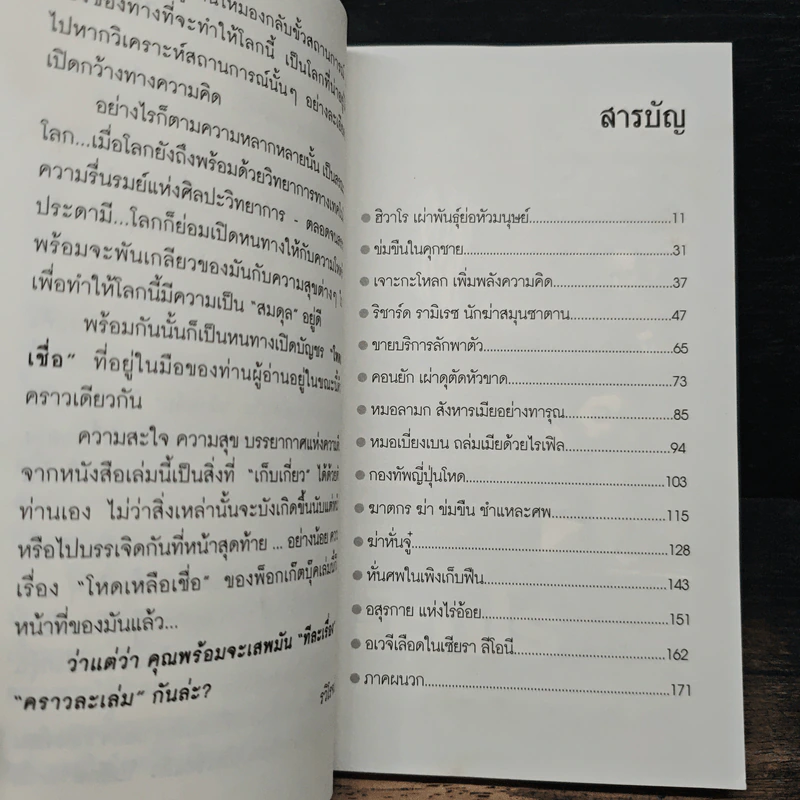 ให้มองกลับขั้วสถานการณ์
ของทางที่จะทำให้โลกนี้ เป็นโลกที่น่าอยู่
ไปหากวิเคราะห์สถานการณ์นั้นๆ อย่างละเอียด
เปิดกว้างทางความคิด
อย่างไรก็ตามความหลากหลายนั้น เป็น
โลก...เมื่อโลกยังถึงพร้อมด้วยวิทยาการทางเทคโน
ความรื่นรมย์แห่งศิลปะวิทยาการ - ตลอดจน
ประดามี...โลกก็ย่อมเปิดหนทางให้กับความโหด
พร้อมจะพันเกลียวของมันกับความสุขต่างๆ
เพื่อทำให้โลกนี้มีความเป็น “สมดุล” อยู่ดี
พร้อมกันนั้นก็เป็นหนทางเปิดบัญชร “โหด
เชื่อ” ที่อยู่ในมือของท่านผู้อ่านอยู่ในขณะนี้
คราวเดียวกัน
ความสะใจ ความสุข บรรยากาศแห่งความ
จากหนังสือเล่มนี้เป็นสิ่งที่ “เก็บเกี่ยว” ได้ด้วย
ท่านเอง ไม่ว่าสิ่งเหล่านั้นจะบังเกิดขึ้นนับแต่
หรือไปบรรเจิดกันที่หน้าสุดท้าย ... อย่างน้อย
เรื่อง “โหดเหลือเชื่อ” ของพ็อกเก็ตบุ๊คเล่มนี้
หน้าที่ของมันแล้ว...
ว่าแต่ว่า คุณพร้อมจะเสพมัน “ทีละเรื่อง”
“คราวละเล่ม” กันล่ะ?
สารบัญ
ฮิวาโร เผ่าพันธุ์ย่อหัวมนุษย์...11
ข่มขืนในคุกชาย...31
เจาะกะโหลก เพิ่มพลังความคิด...37
ริชาร์ด รามิเรซ นักฆ่าสมุนซาตาน...47
ขายบริการลักพาตัว...65
คอนยัก เผ่าดุตัดหัวขาด...73
หมอลามก สังหารเมียอย่างทารุณ...85
หมอเบี่ยงเบน ถล่มเมียด้วยไรเฟิล...94
กองทัพญี่ปุ่นโหด...103
ฆาตกร ฆ่า ข่มขืน ชำแหละศพ...115
ฆ่าหั่นจู๋...128
หั่นศพในเพิงเก็บฟืน...143
อสุรกาย แห่งไร่อ้อย...151
อเวจีเลือดในเซียรา ลีโอนี...162
ภาคผนวก...171